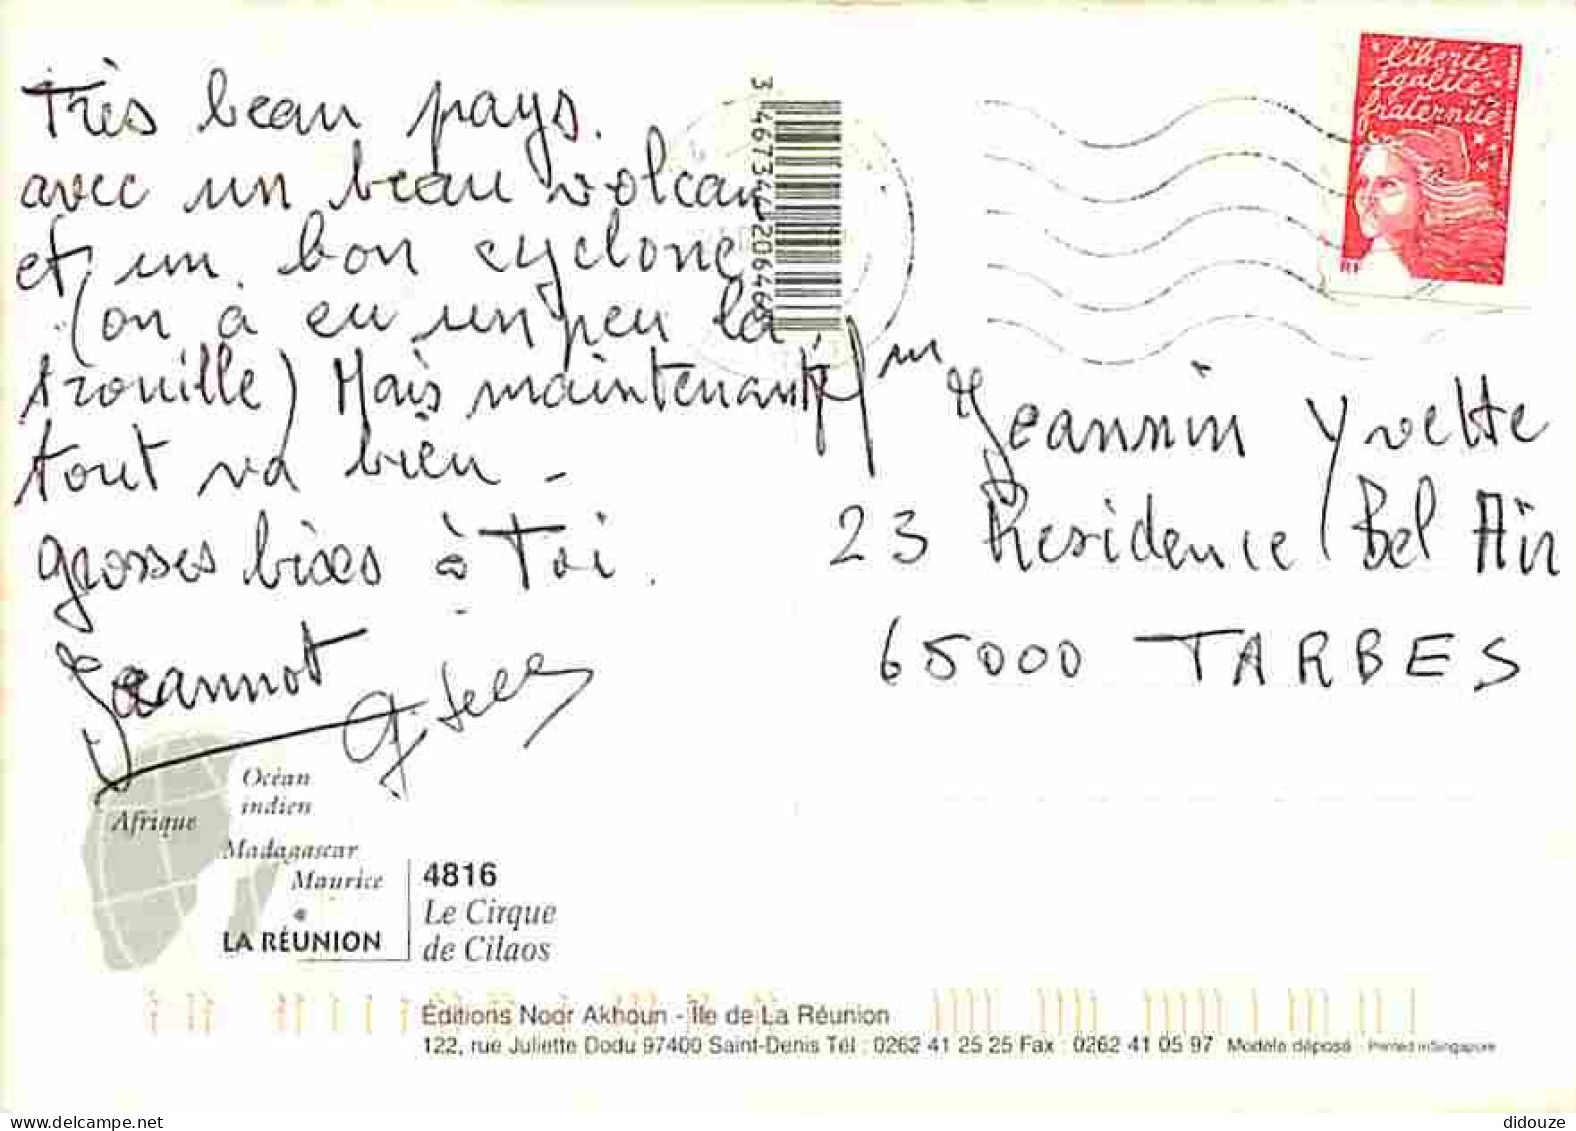 Très beau pays.
avec un beau volcan
et un bon cyclone
(on à eu un peu la
trouille) Mais maintenant
tout va bien -
grosses bises à Toi.
Jeannot
3 467344 206466
liberté
égalité
fraternité
RF
Jeannin Yvette
23 Residence Bel Air
65000 TARBES
Océan
indien
Afrique
Madagascar
Maurice
LA RÉUNION
4816
Le Cirque
de Cilaos
Éditions Noor Akhoun - Île de La Réunion
122, rue Juliette Dodu 97400 Saint-Denis Tél : 0262 41 25 25 Fax : 0262 41 05 97 Modèle déposé - Printed in Singapore
didouze